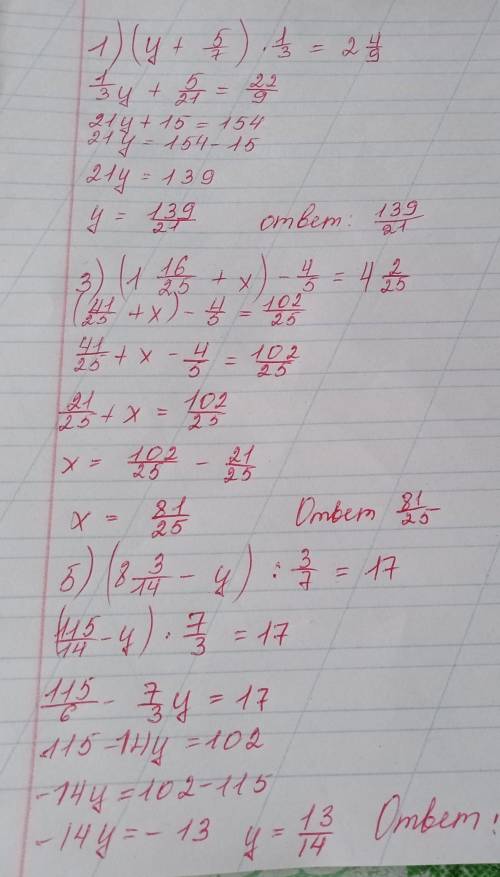 1) (y + 5/7) · 1/3 = 2 4/9
1/3 y + 5/21 = 22/9
21y + 15 = 154
21y = 154 - 15
21y = 139
y = 139/21 ответ: 139/21
3) (1 16/25 + x) - 4/5 = 4 2/25
(41/25 + x) - 4/5 = 102/25
41/25 + x - 4/5 = 102/25
21/25 + x = 102/25
x = 102/25 - 21/25
x = 81/25 Ответ 81/25
5) (8 3/14 - y) : 3/7 = 17
(115/14 - y) · 7/3 = 17
115/6 - 7/3 y = 17
115 - 14y = 102
-14y = 102 - 115
-14y = - 13 y = 13/14 Ответ: